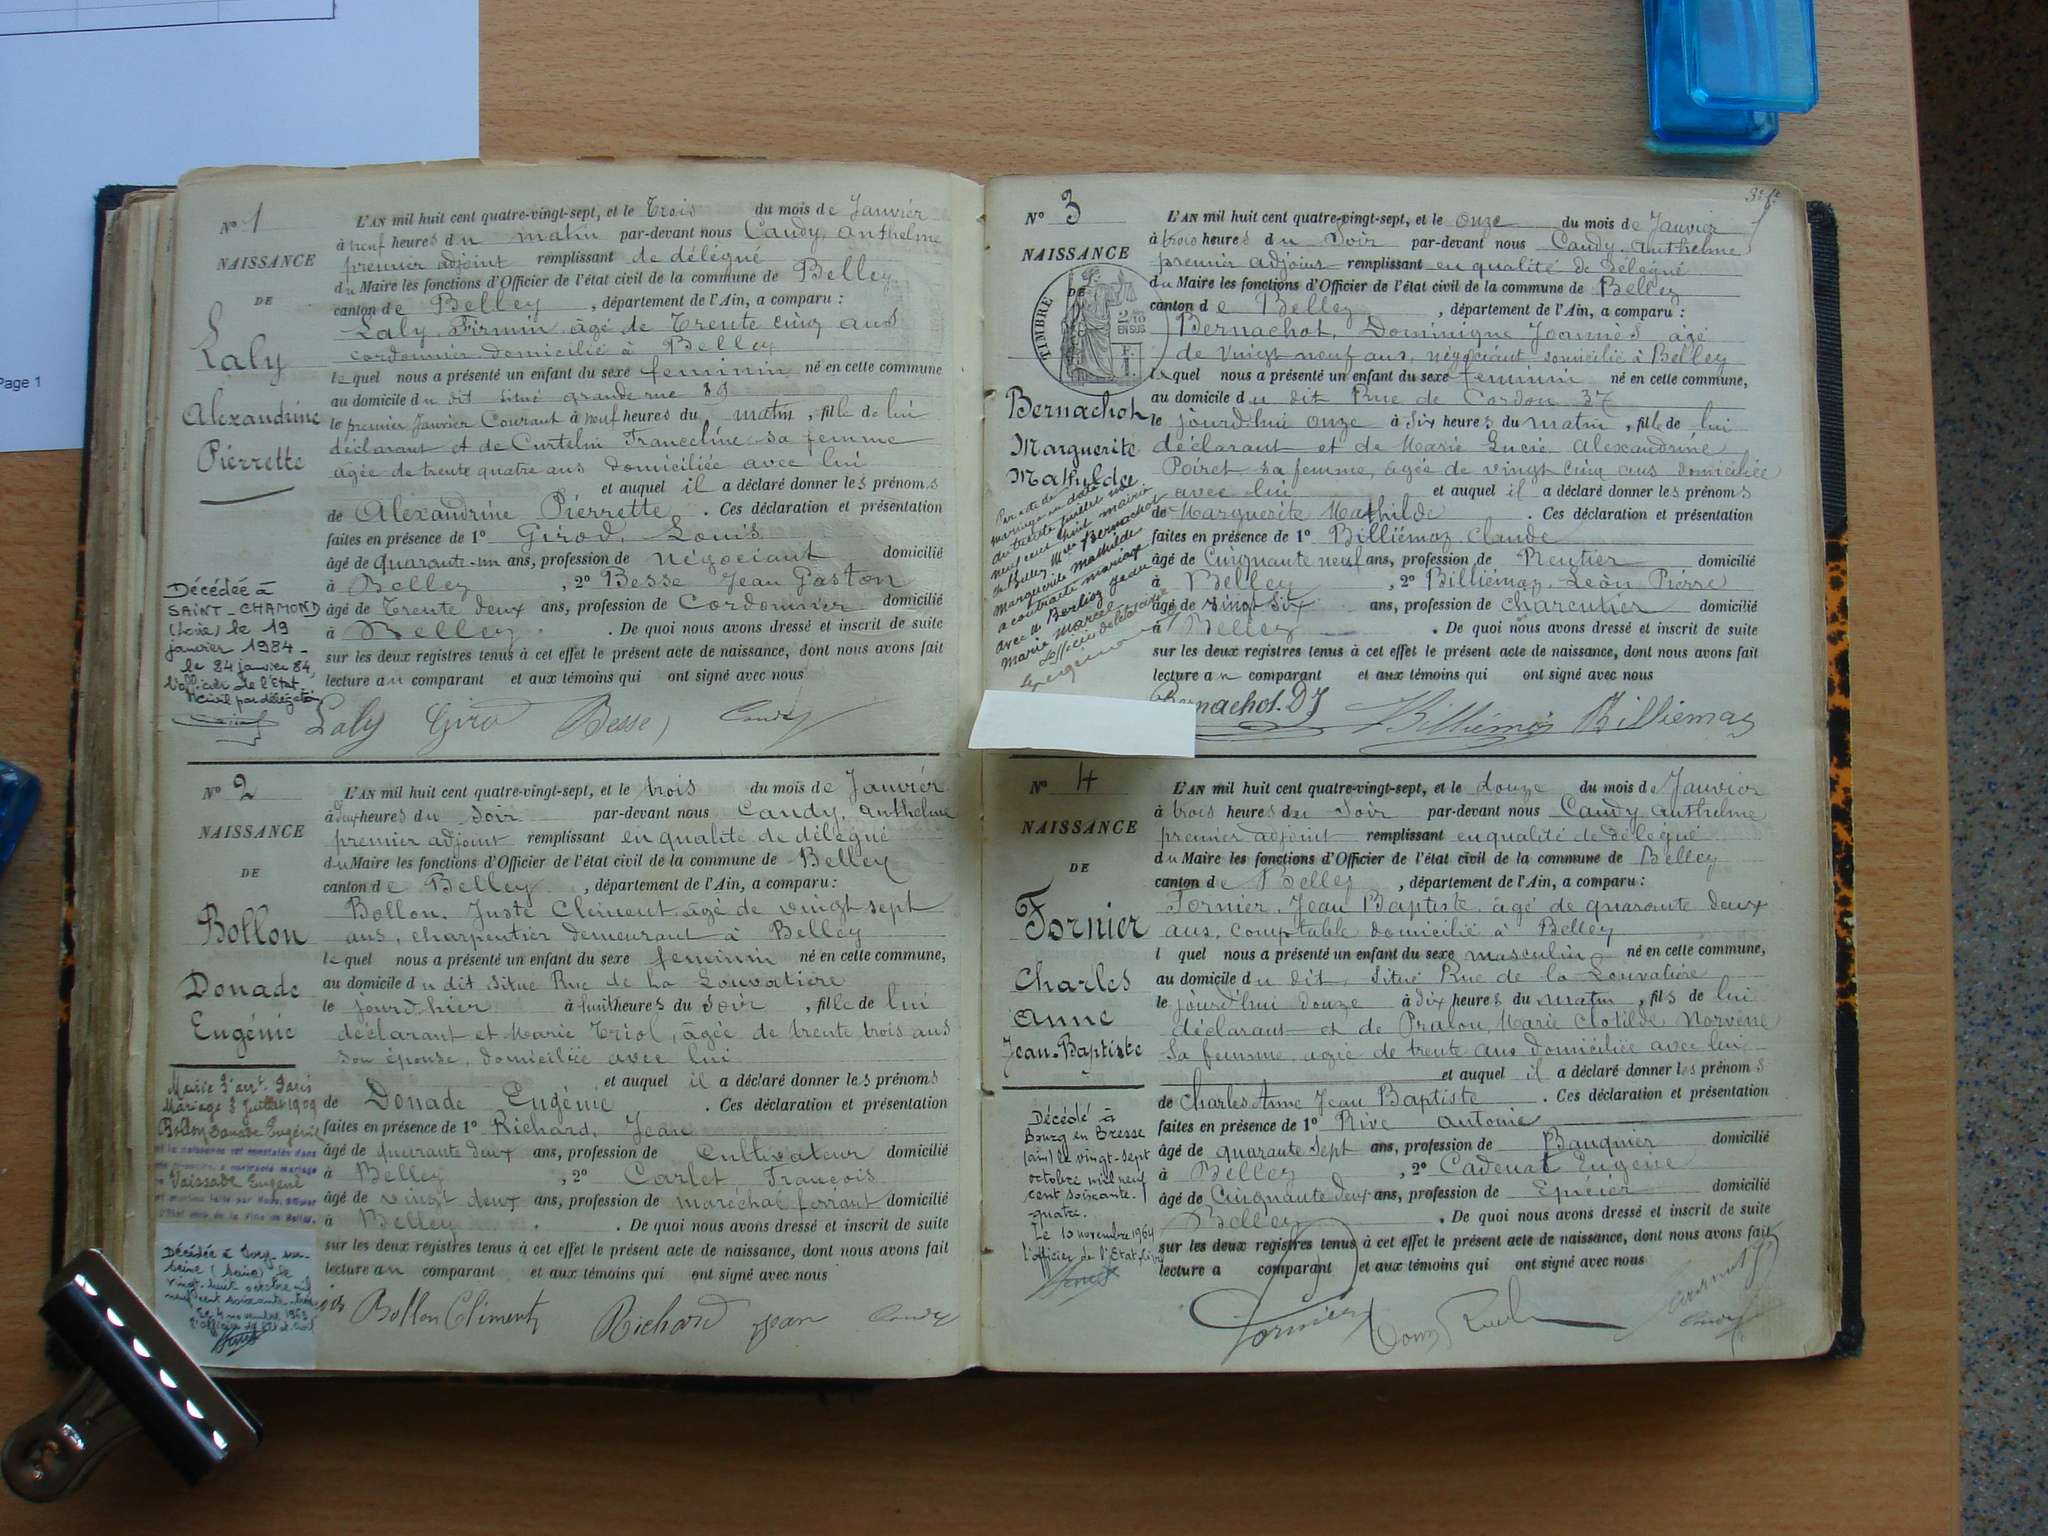 Page 1
N° 1
NAISSANCE
DE
Laly
Alexandrine
Pierrette
Décédée à
SAINT-CHAMOND
(Loire) le 19
janvier 1984
le 24 janvier 84
l'officier de l'Etat
Civil par délégation
L'AN mil huit cent quatre-vingt-sept, et le Trois du mois de Janvier
à neuf heures du matin par-devant nous Candy, Anthelme
premier adjoint remplissant de délégué
du Maire les fonctions d'Officier de l'état civil de la commune de Belley
canton de Belley, département de l'Ain, a comparu :
Laly, Firmin, âgé de Trente cinq ans
cordonnier domicilié à Belley
lequel nous a présenté un enfant du sexe feminin né en cette commune
au domicile du dit situé grande rue 89
le premier Janvier Courant à neuf heures du matin, fille de lui
déclarant et de Curtelin Franceline sa femme
agée de trente quatre ans domiciliée avec lui
et auquel il a déclaré donner les prénoms
de Alexandrine Pierrette. Ces déclaration et présentation
faites en présence de 1° Girod, Louis
âgé de quarante-un ans, profession de négociant domicilié
à Belley, 2° Besse Jean Gaston
âgé de Trente deux ans, profession de Cordonnier domicilié
à Belley. De quoi nous avons dressé et inscrit de suite
sur les deux registres tenus à cet effet le présent acte de naissance, dont nous avons fait
lecture au comparant et aux témoins qui ont signé avec nous
Laly Giro Besse Candy
N° 2
NAISSANCE
DE
Bollon
Donade
Eugénie
Mairie 3e arrt Paris
Mariage 3 Juillet 1909
Bollon Donade Eugénie
Vaissade Eugène
Décédée à
seine (Seine) le
vingt-huit octobre mil
neuf cent soixante-trois
Le 4 novembre 1963
l'officier de l'Etat Civil
L'AN mil huit cent quatre-vingt-sept, et le trois du mois de Janvier
à deux heures du soir par-devant nous Candy, Anthelme
premier adjoint remplissant en qualité de délégué
du Maire les fonctions d'Officier de l'état civil de la commune de Belley
canton de Belley, département de l'Ain, a comparu :
Bollon, Juste Clément, âgé de vingt sept
ans, charpentier demeurant à Belley
lequel nous a présenté un enfant du sexe feminin né en cette commune,
au domicile du dit situé Rue de la Louvatière
le jourd'hier à huit heures du soir, fille de lui
déclarant et Marie Triol, âgée de trente trois ans
son épouse, domiciliée avec lui
et auquel il a déclaré donner les prénoms
de Donade Eugénie. Ces déclaration et présentation
faites en présence de 1° Richard, Jean
âgé de quarante deux ans, profession de Cultivateur domicilié
à Belley, 2° Carlet, François
âgé de vingt deux ans, profession de maréchal ferrant domicilié
à Belley. De quoi nous avons dressé et inscrit de suite
sur les deux registres tenus à cet effet le présent acte de naissance, dont nous avons fait
lecture au comparant et aux témoins qui ont signé avec nous
Bollon Climent Richard Jean Candy
N° 3
NAISSANCE
DE
TIMBRE
2/10
EN SUS
Bernachot
Marguerite
Mathilde
Par acte de
mariage en date
du trente juillet mil
neuf cent huit mairie
de Belley Mlle Bernachot
Marguerite Mathilde
a contracté mariage
avec M Berlioz Jean
Marie Marcel
L'officier de l'état civil
L'AN mil huit cent quatre-vingt-sept, et le onze du mois de Janvier
à trois heures du Soir par-devant nous Candy, Anthelme
premier adjoint remplissant en qualité de délégué
du Maire les fonctions d'Officier de l'état civil de la commune de Belley
canton de Belley, département de l'Ain, a comparu :
Bernachot, Dominique Joannès âgé
de vingt neuf ans, négociant domicilié à Belley
lequel nous a présenté un enfant du sexe feminin né en cette commune,
au domicile du dit Rue de Cordon 37
le jourd'hui onze à six heures du matin, fille de lui
déclarant et de Marie Lucie Alexandrine
Poiret sa femme, agée de vingt cinq ans domiciliée
avec lui et auquel il a déclaré donner les prénoms
de Marguerite Mathilde. Ces déclaration et présentation
faites en présence de 1° Billiémaz Claude
âgé de Cinquante neuf ans, profession de Rentier domicilié
à Belley, 2° Billiémaz, Léon Pierre
âgé de vingt six ans, profession de charcutier domicilié
à Belley. De quoi nous avons dressé et inscrit de suite
sur les deux registres tenus à cet effet le présent acte de naissance, dont nous avons fait
lecture au comparant et aux témoins qui ont signé avec nous
Bernachot. DJ Billiémaz Billiemaz
N° 4
NAISSANCE
DE
Fornier
Charles
Anne
Jean-Baptiste
Décédé à
Bourg en Bresse
(Ain) le vingt-sept
octobre mil neuf
cent soixante-
quatre.
Le 10 novembre 1964
l'officier de l'Etat Civil
L'AN mil huit cent quatre-vingt-sept, et le douze du mois de Janvier
à trois heures du Soir par-devant nous Candy Anthelme
premier adjoint remplissant en qualité de délégué
du Maire les fonctions d'Officier de l'état civil de la commune de Belley
canton de Belley, département de l'Ain, a comparu :
Fornier, Jean Baptiste, âgé de quarante deux
ans, comptable domicilié à Belley
l quel nous a présenté un enfant du sexe masculin né en cette commune,
au domicile du dit, situé Rue de la Louvatière
le jourd'hui douze à dix heures du matin, fils de lui
déclarant et de Pralon, Marie Clotilde Norvène
sa femme, agée de trente ans domiciliée avec lui
et auquel il a déclaré donner les prénoms
de Charles Anne Jean Baptiste. Ces déclaration et présentation
faites en présence de 1° Rive Antoine
âgé de quarante sept ans, profession de Banquier domicilié
à Belley, 2° Cadenat Eugène
âgé de Cinquante deux ans, profession de Epicier domicilié
Belley. De quoi nous avons dressé et inscrit de suite
sur les deux registres tenus à cet effet le présent acte de naissance, dont nous avons fait
lecture a comparant et aux témoins qui ont signé avec nous
Fornier Candy